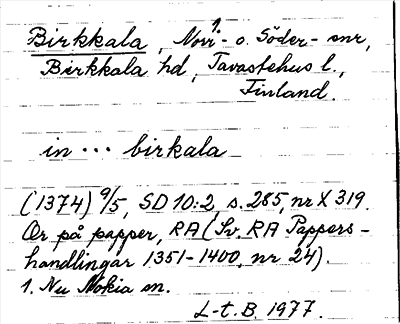 Birkkala, Norr¹- o. Söder- snr,
Birkkala hd, Tavastehus l.,
Finland.
in ... birkala
(1374) 9/5, SD 10:2, s. 285, nr X 319.
Or på papper, RA (Sv. RA Pappers-
handlingar 1351-1400, nr 24).
1. Nu Nokia sn.
L-t. B. 1977.